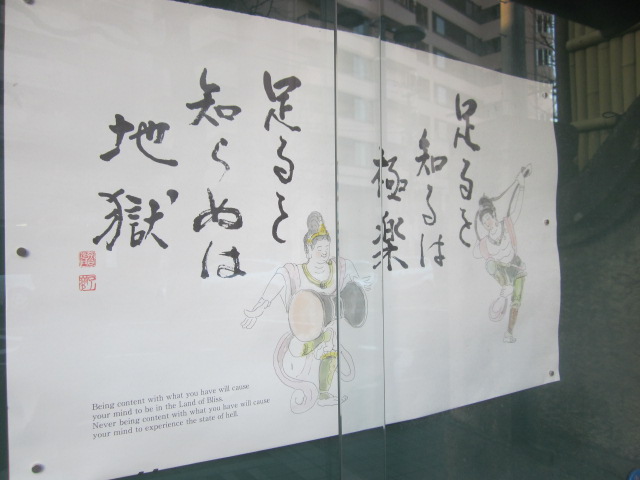 足ると
知るは
極楽
足ると
知らぬは
地獄
Being content with what you have will cause
your mind to be in the Land of Bliss.
Never being content with what you have will cause
your mind to experience the state of hell.